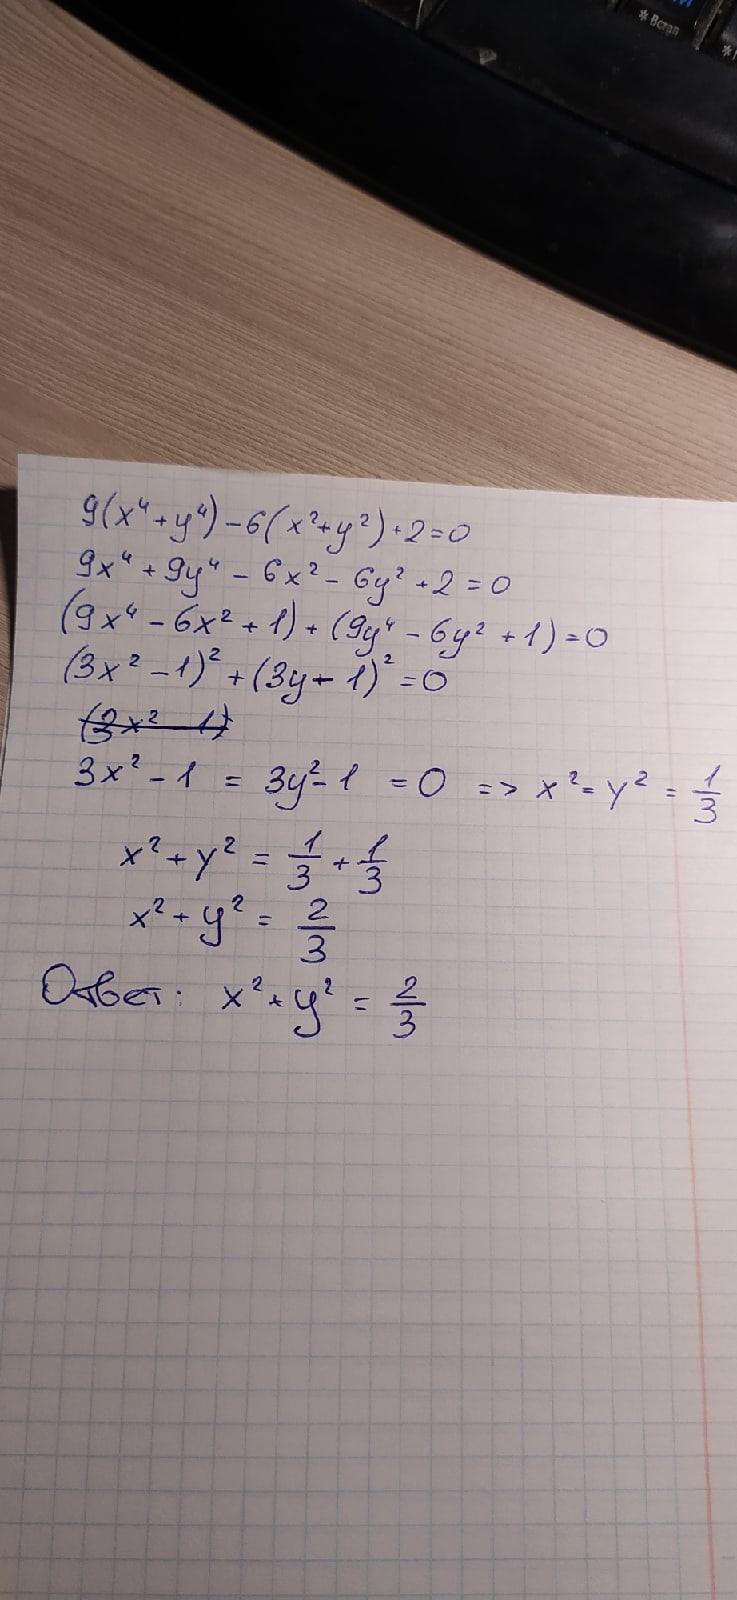 * Встав
9(x⁴+y⁴)-6(x²+y²)+2=0
9x⁴+9y⁴-6x²-6y²+2=0
(9x⁴-6x²+1)+(9y⁴-6y²+1)=0
(3x²-1)²+(3y-1)²=0
(3x²-1)
3x²-1=3y²-1=0 => x²=y²=1/3
x²+y²=1/3+1/3
x²+y²=2/3
Ответ: x²+y²=2/3